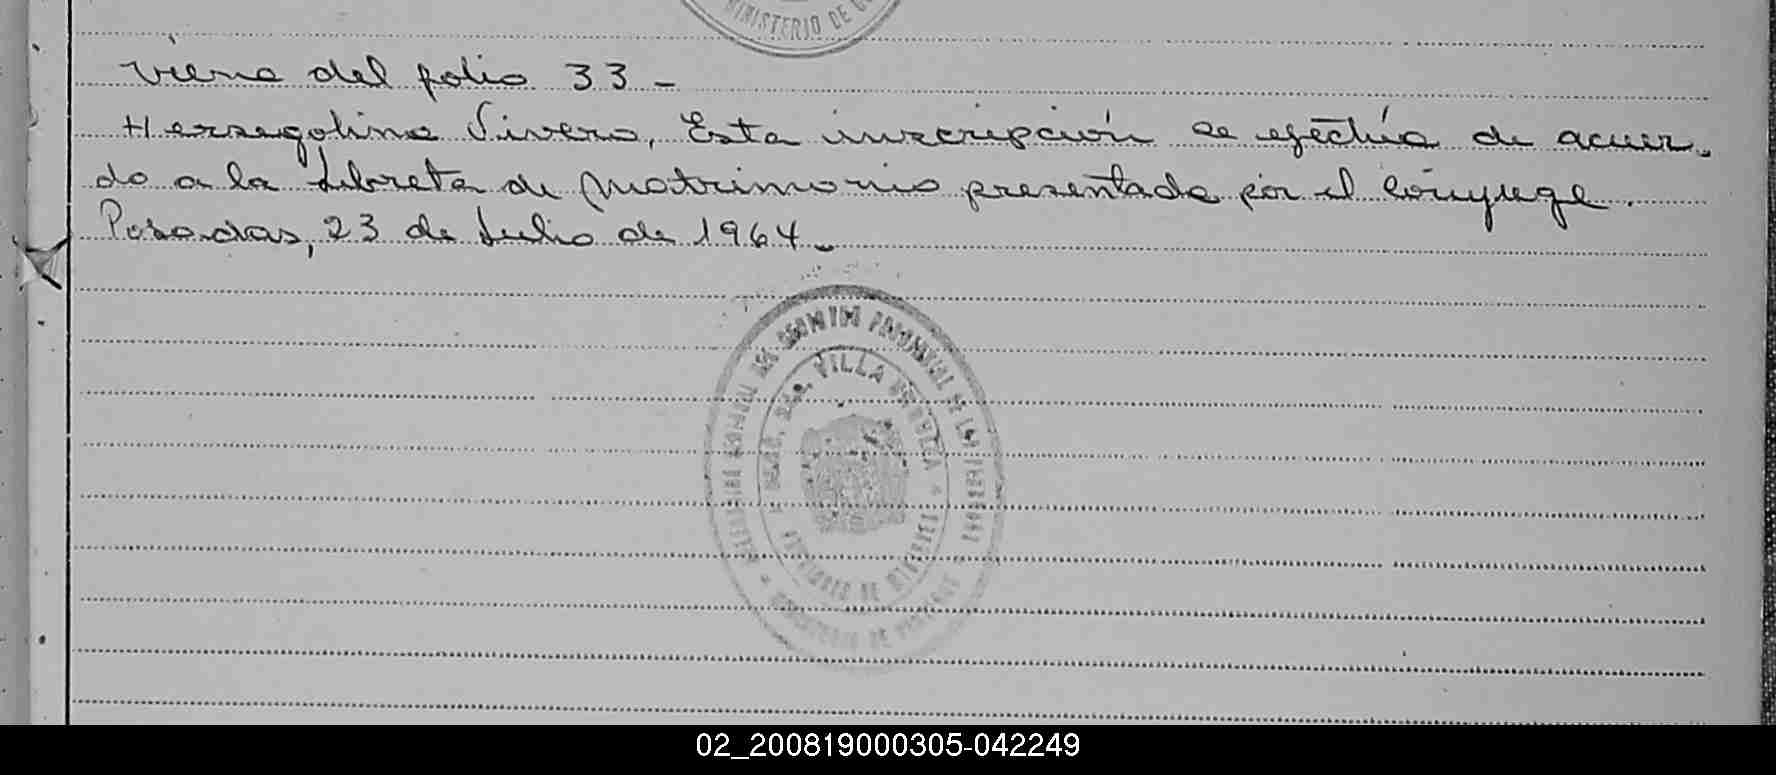 MINISTERIO DE
viene del folio 33 -
Hersegolina Vivero, Esta inscripción se efectúa de acuer-
do a la Libreta de Matrimonio presentada por el cónyuge.
Posadas, 23 de Julio de 1964.-
VILLA
02_200819000305-042249